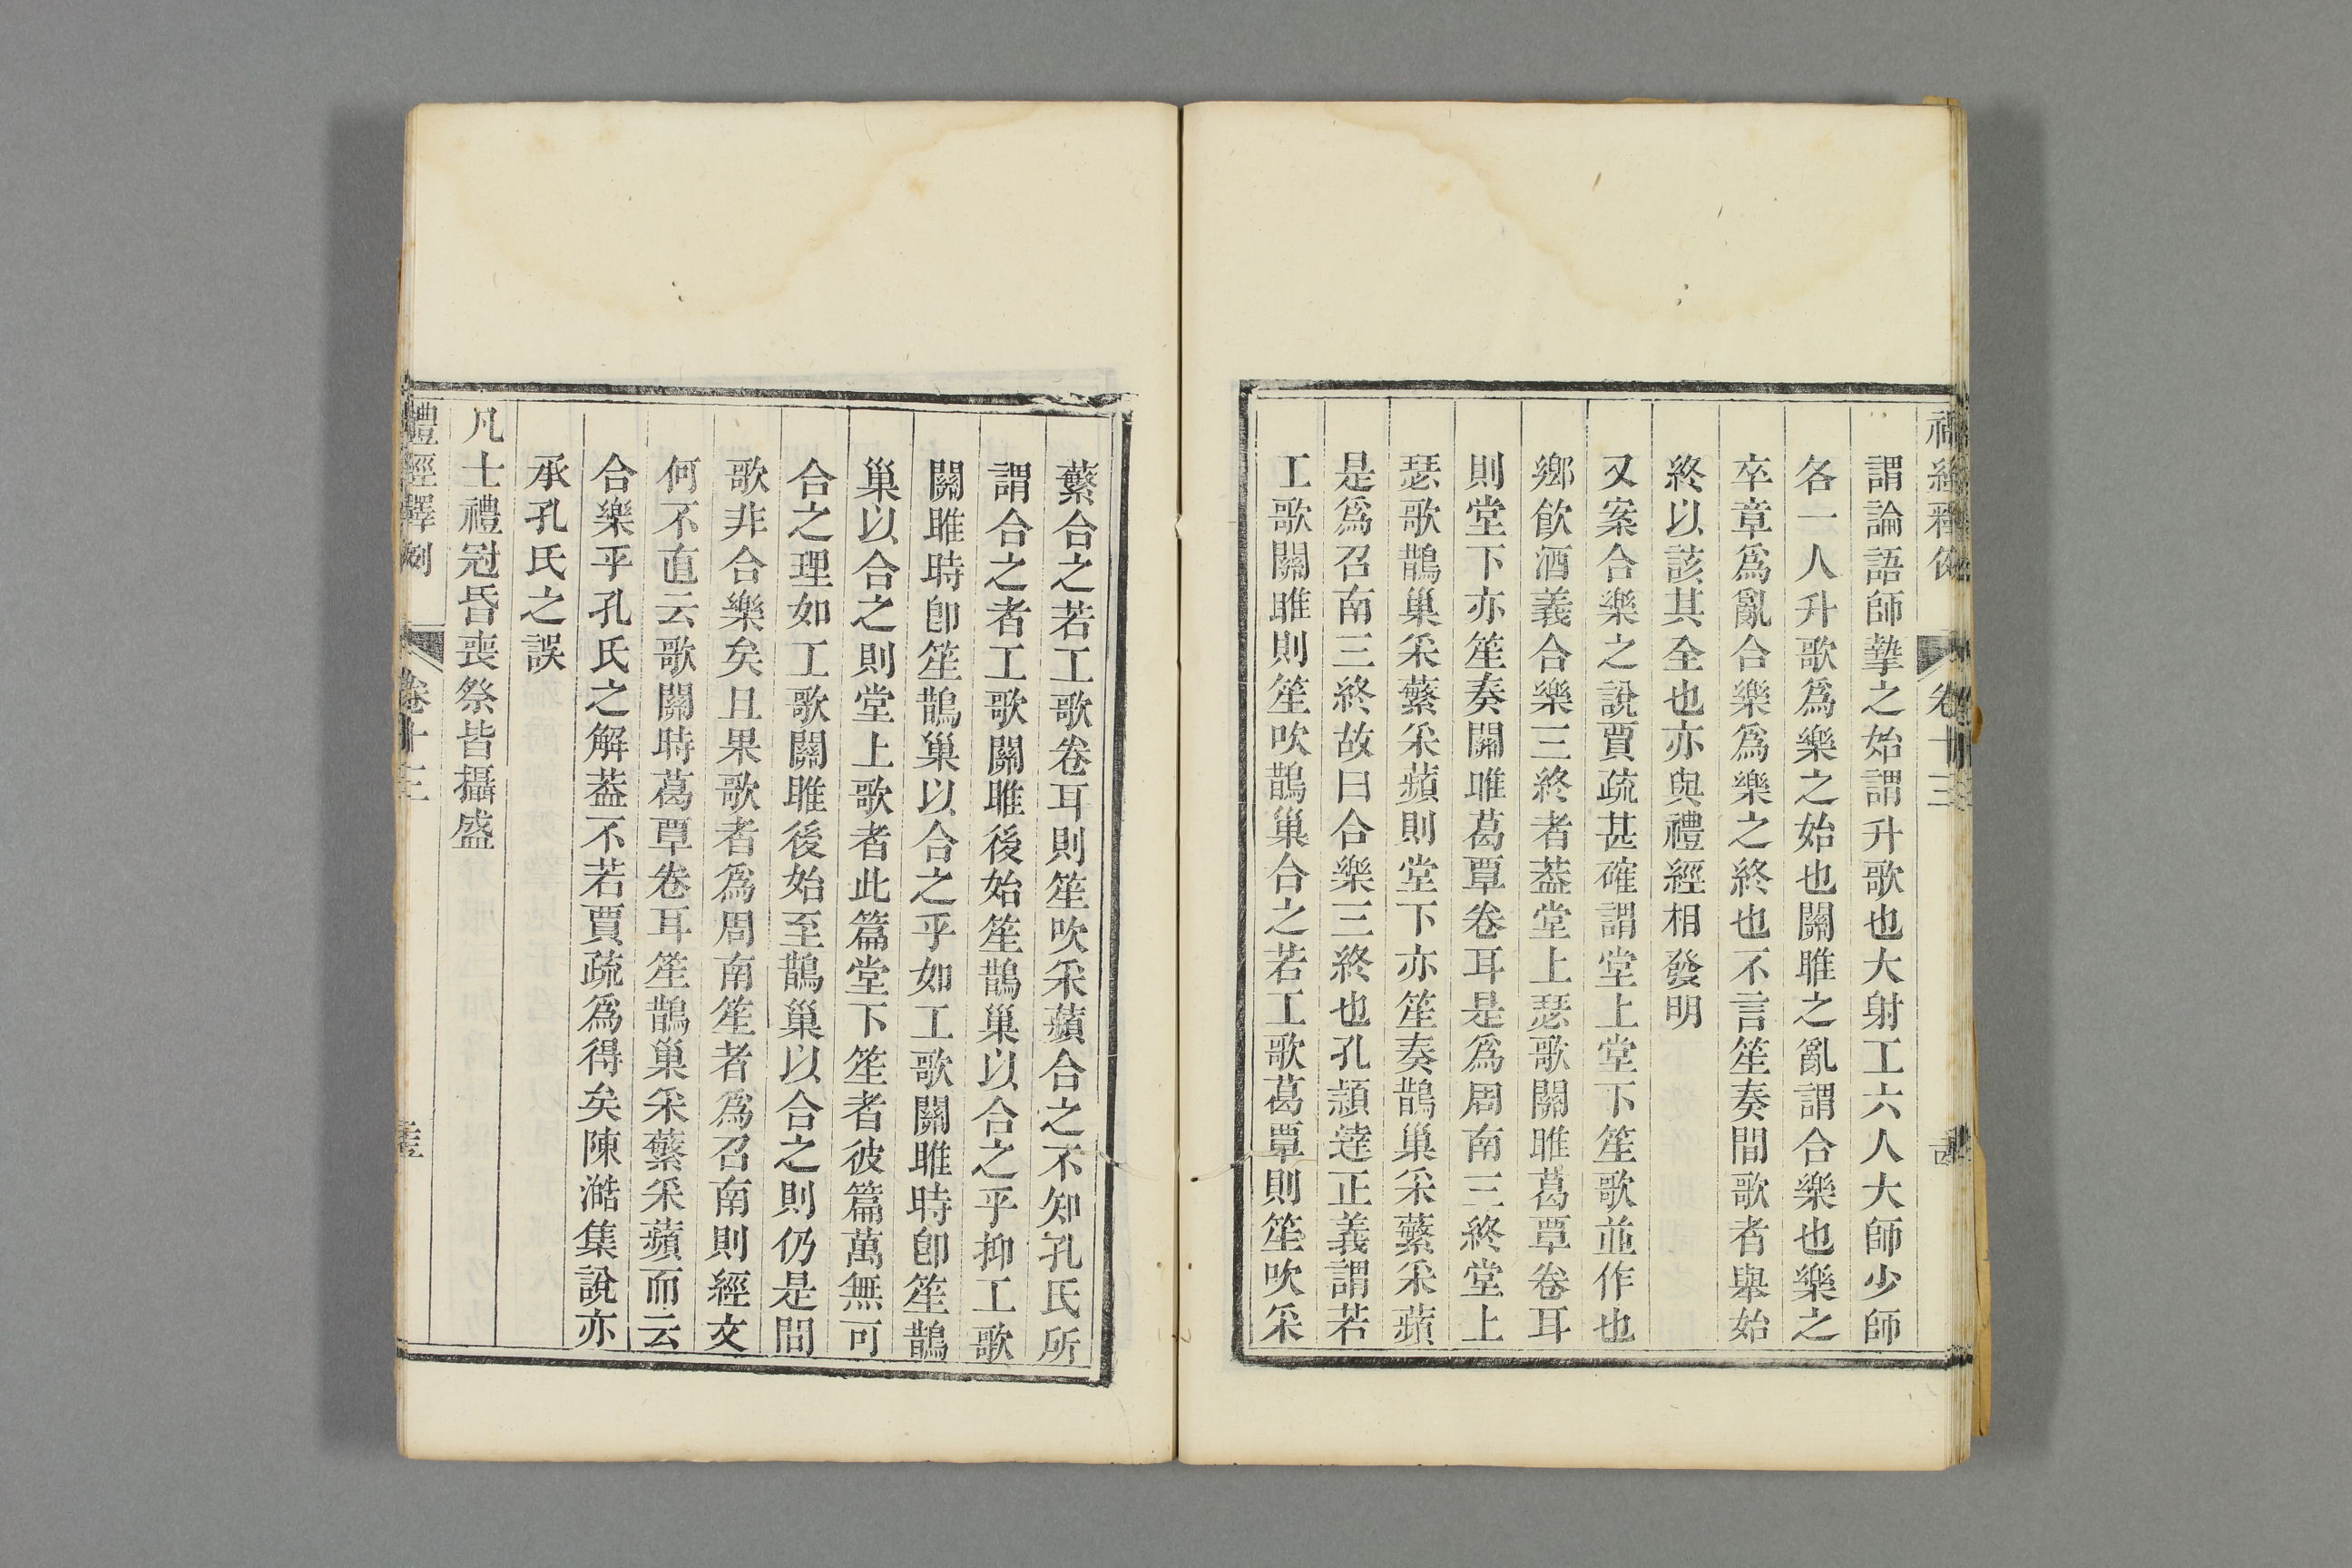 禮經釋例 卷十三
謂論語師摯之始謂升歌也大射工六人大師少師
各一人升歌爲樂之始也關雎之亂謂合樂也樂之
卒章爲亂合樂爲樂之終也不言笙奏間歌者舉始
終以該其全也亦與禮經相發明
又案合樂之說賈疏甚確謂堂上堂下笙歌並作也
鄉飮酒義合樂三終者葢堂上瑟歌關雎葛覃卷耳
則堂下亦笙奏關雎葛覃卷耳是爲周南三終堂上
瑟歌鵲巢采蘩采蘋則堂下亦笙奏鵲巢采蘩采蘋
是爲召南三終故曰合樂三終也孔穎達正義謂若
工歌關雎則笙吹鵲巢合之若工歌葛覃則笙吹采
蘩合之若工歌卷耳則笙吹采蘋合之不知孔氏所
謂合之者工歌關雎後始笙鵲巢以合之乎抑工歌
關雎時卽笙鵲巢以合之乎如工歌關雎時卽笙鵲
巢以合之則堂上歌者此篇堂下笙者彼篇萬無可
合之理如工歌關雎後始至鵲巢以合之則仍是間
歌非合樂矣且果歌者爲周南笙者爲召南則經文
何不直云歌關時葛覃卷耳笙鵲巢采蘩采蘋而云
合樂乎孔氏之解葢不若賈疏爲得矣陳澔集說亦
承孔氏之誤
凡士禮冠昏喪祭皆攝盛
禮經釋例 卷十三